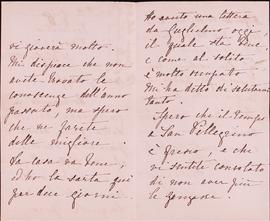 vi gioverà molto.
Mi dispiace che non
avete trovato le
conoscenze dell'anno
passato, ma spero
che ne farete
delle migliore.
La casa va bene,
ed ho la sarta qui
per due giorni.
Ho avuto una lettera
da Guglielmo oggi,
il quale sta bene,
e come al solito
è molto occupato
Mi ha detto di salutarvi
tanto.
Spero che il tempo
a San Pellegrino
è fresco, e che
vi sentite consolato
di non aver più
le